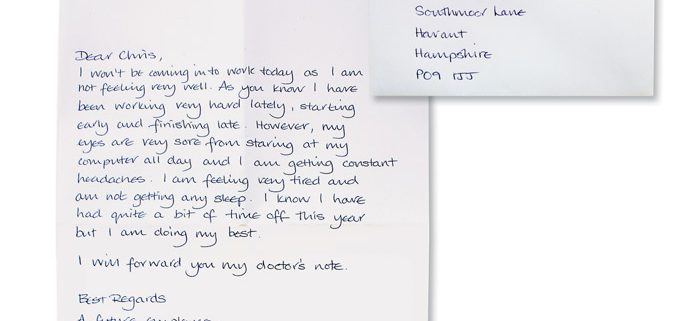 Southmoor Lane
Havant
Hampshire
PO9 1JJ
Dear Chris,
I won't be coming in to work today as I am
not feeling very well. As you know I have
been working very hard lately, starting
early and finishing late. However, my
eyes are very sore from staring at my
computer all day and I am getting constant
headaches. I am feeling very tired and
am not getting any sleep. I know I have
had quite a bit of time off this year
but I am doing my best.
I will forward you my doctor's note.
Best Regards
A future employee